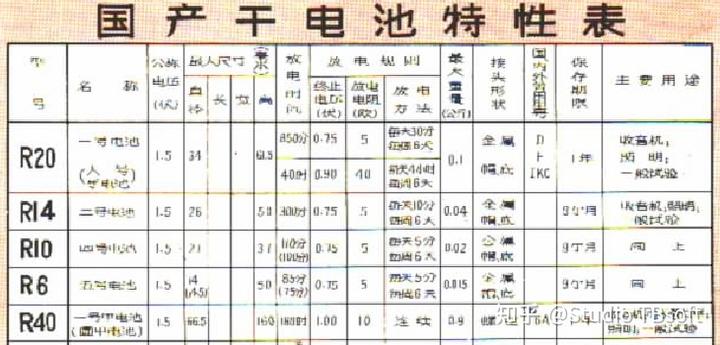 国产干电池特性表
型号 名称 公称电压(伏) 最大尺寸(毫米) 直径 长 宽 高 放电时间 放电规则 终止电压(伏) 放电电阻(欧) 放电方法 最大重量(公斤) 接头形状 国内外習用号 保存期限 主要用途
R20 一号电池 1.5 34 61.5 850分 0.75 5 每天30分 每周6天 0.1 金属帽底 D 1年 收音机,照明,一般试验
40时 0.90 40 每天4小时 每周6天
R14 二号电池 1.5 26 50 300分 0.75 5 每天10分 每周6天 0.04 金属帽底 9个月 收音机,照明,一般试验
R10 四号电池 1.5 21 37 110分 (100分) 0.75 5 每天5分 每周6天 0.02 金属帽底 9个月 同上
R6 五号电池 1.5 14 (14.5) 50 85分 (75分) 0.75 5 每天5分 每周6天 0.015 金属帽底 9个月 同上
R40 一号甲电池 (圆甲电池) 1.5 66.5 160 180时 1.00 10 连续 0.9 照明,一般试验
知乎 @StudioTBsoft